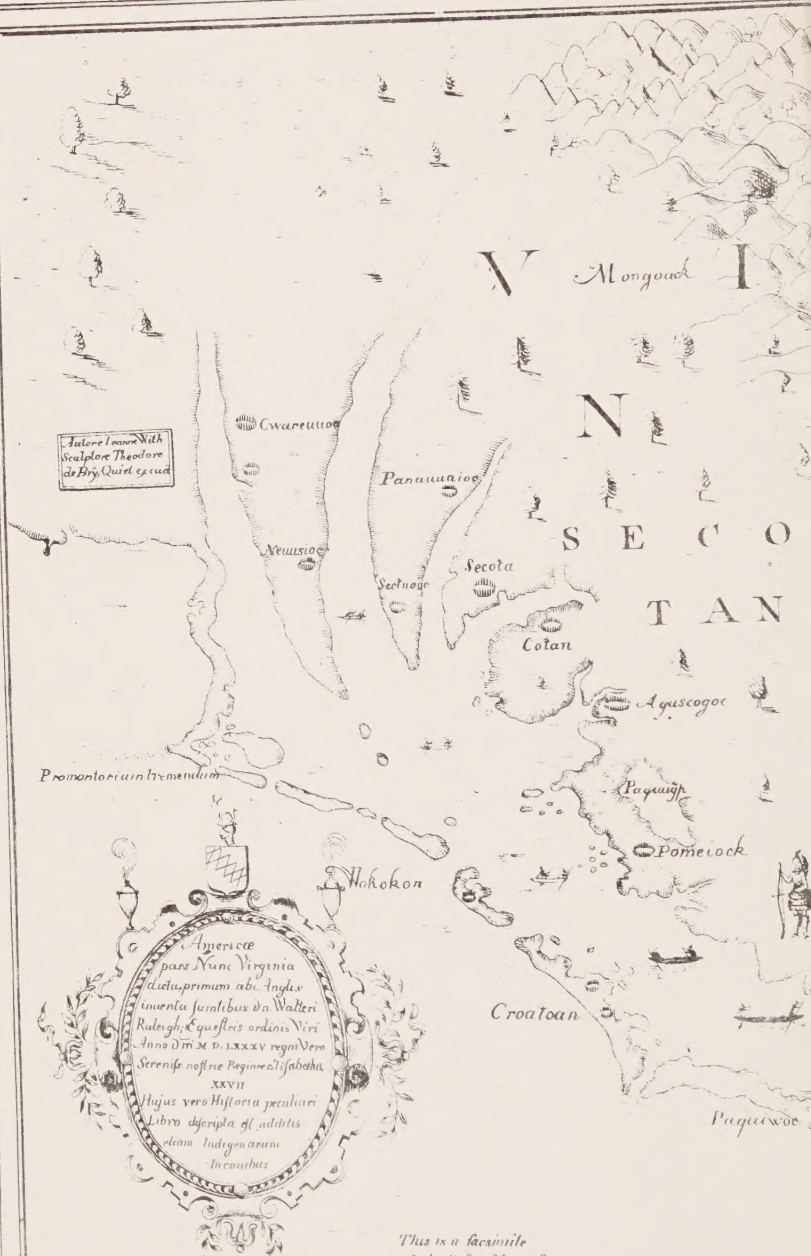 V Mongoack I
N
Cwareuuoc
Autore Ioanne With
Sculptore Theodore
de Brÿ, Qui et excud
Panauuaioc
S E C O
Neuusioc
Secota
Sectuooc
T A N
Cotan
Aguscogoc
Promontorium tremendum
Paquiyp
Pomeiock
Wokokon
Americæ
pars Nunc Virginia
dicta, primum abc Anglis
inuenta sumtibus Dn Walteri
Raleigh, Equestris ordinis Viri
Anno Dnī M D. LXXXV regni Vero
Sereniss nostræ Reginæ Elisabethæ
XXVII
Hujus vero Historia peculiari
Libro descripta est, additis
etiam Indigenarum
Inconibus
Croatoan
Paquiwoc
This is a facsimile